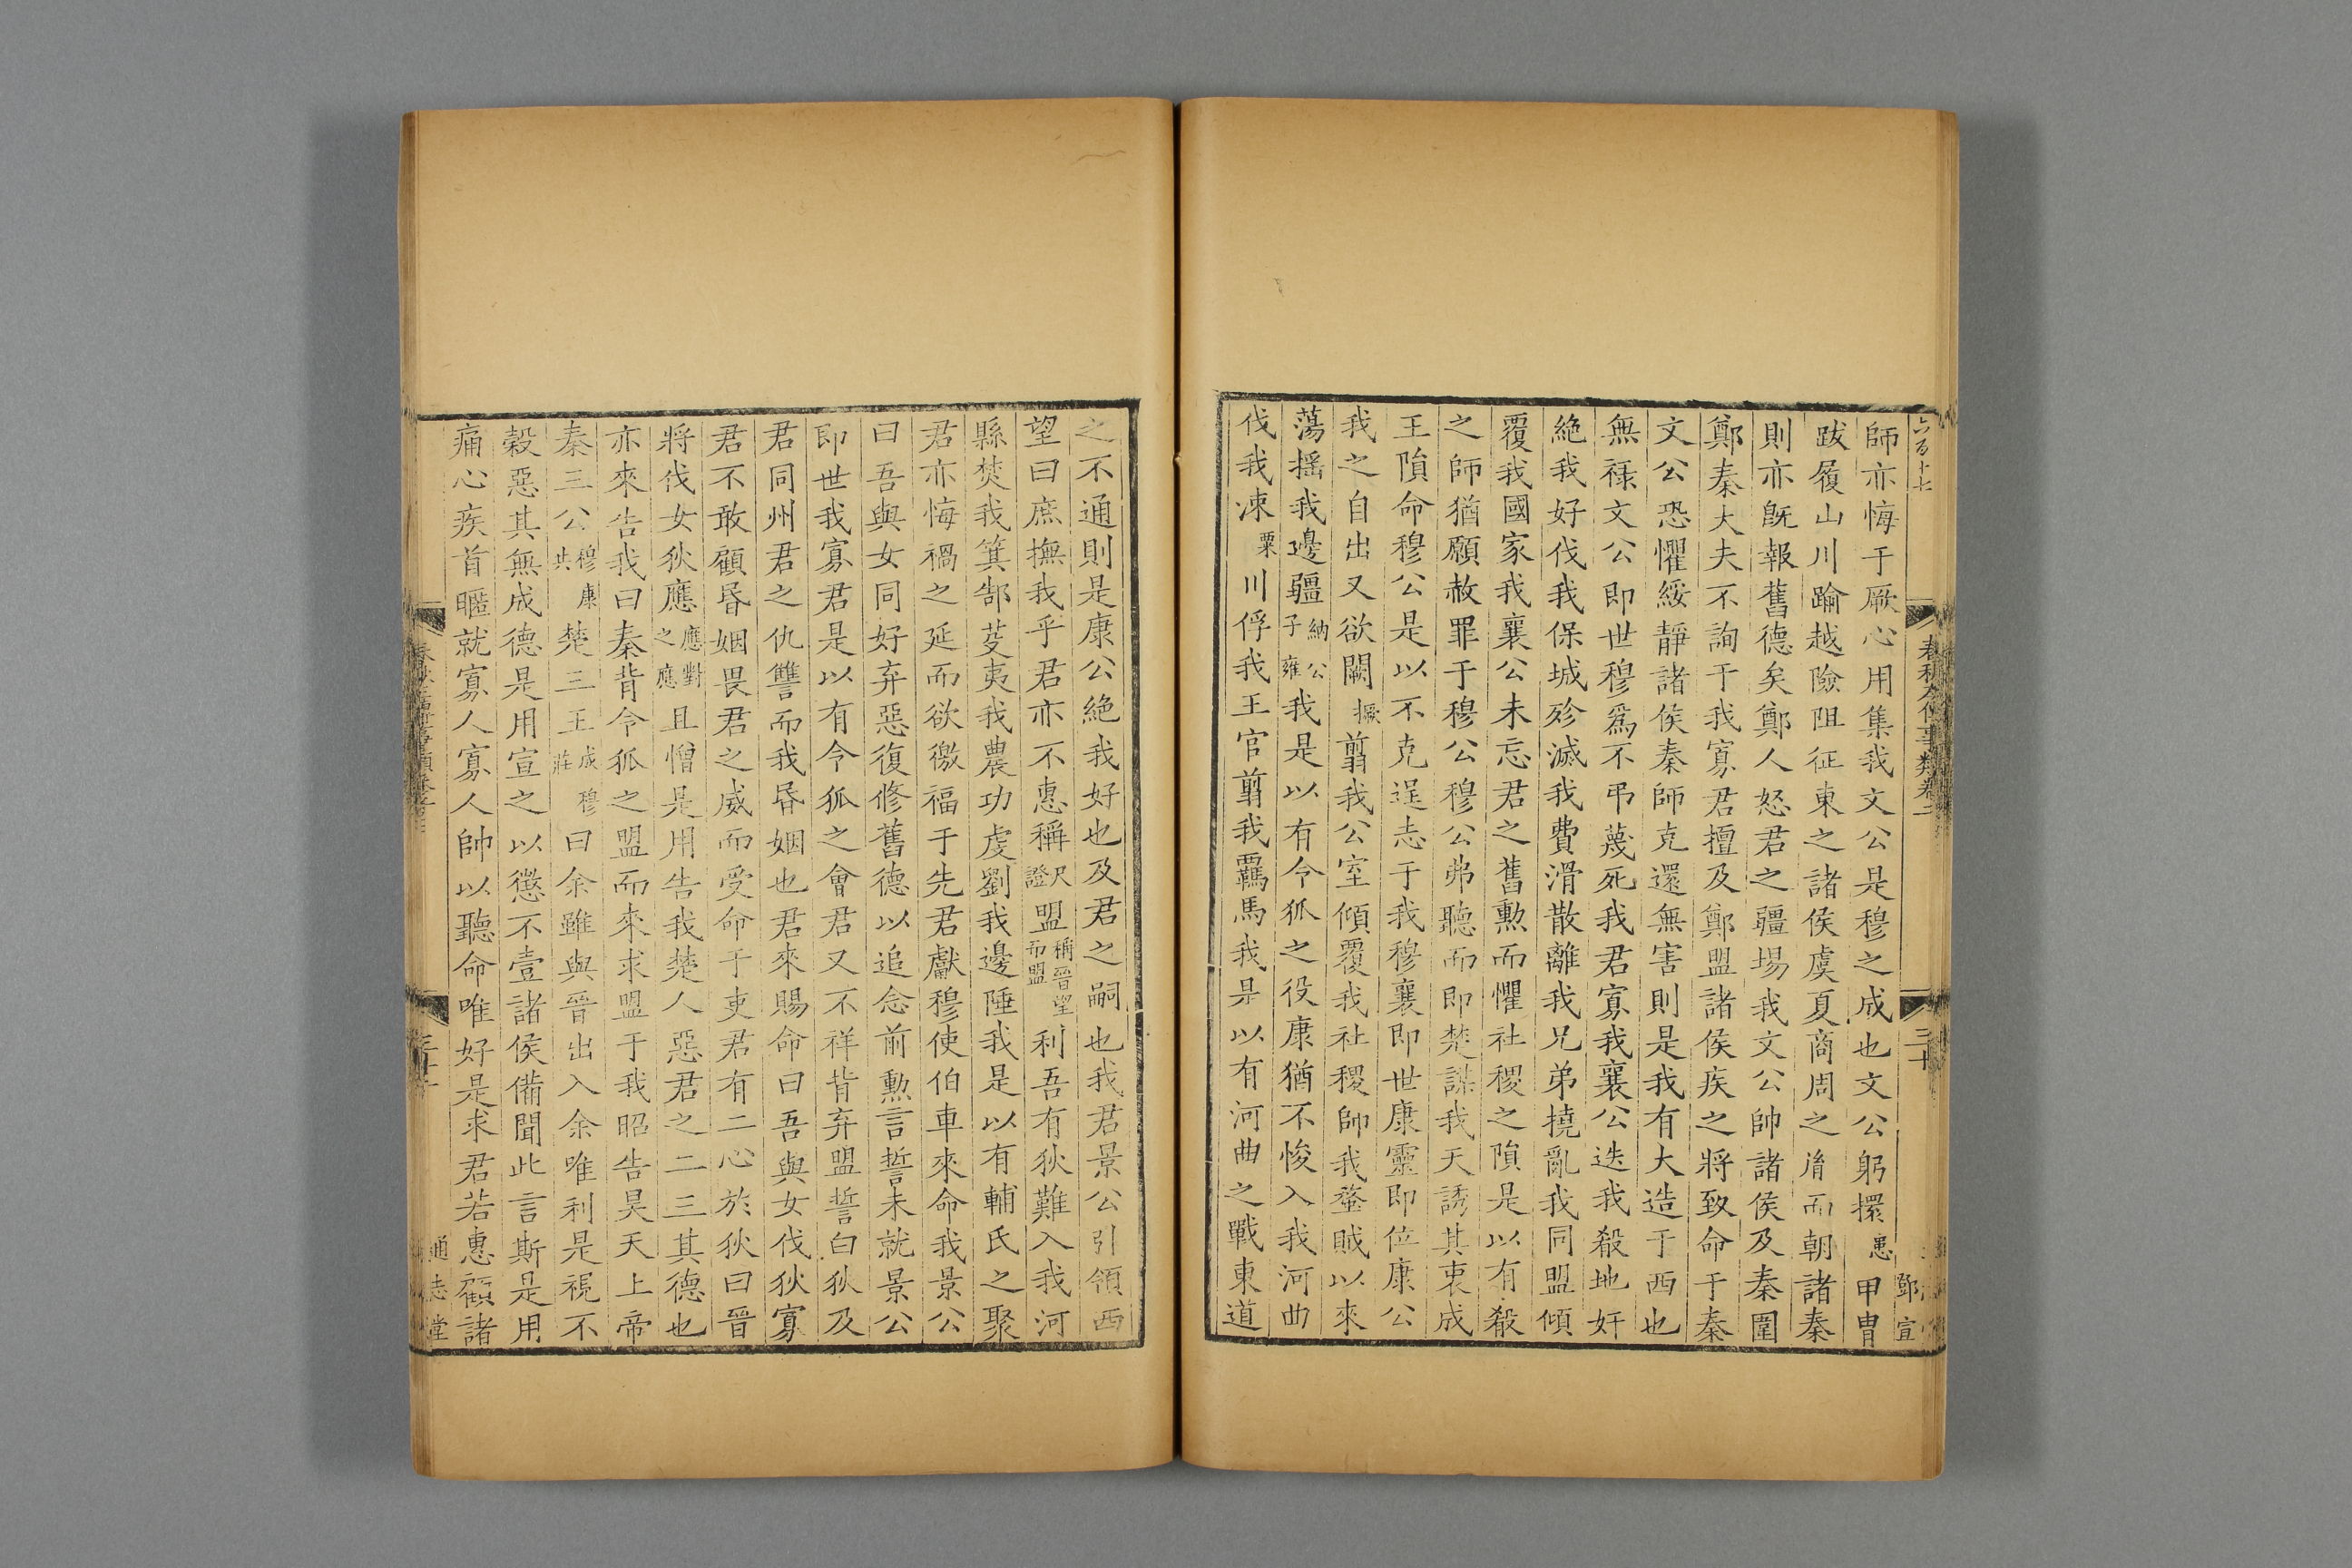 六百十七
鄧宣
師亦悔于厥心用集我文公是穆之成也文公躬擐患甲胄
跋履山川踰越險阻征東之諸侯虞夏商周之㣧而朝諸秦
則亦既報舊德矣鄭人怒君之疆埸我文公帥諸侯及秦圍
鄭秦大夫不詢于我寡君擅及鄭盟諸侯疾之將致命于秦
文公恐懼綏靜諸侯秦師克還無害則是我有大造于西也
無祿文公即世穆爲不弔蔑死我君寡我襄公迭我殽地奸
絶我好伐我保城殄滅我費滑散離我兄弟撓亂我同盟傾
覆我國家我襄公未忘君之舊勲而懼社稷之隕是以有殽
之師猶願赦罪于穆公穆公弗聽而即楚謀我天誘其衷成
王隕命穆公是以不克逞志于我穆襄即世康靈即位康公
我之自出又欲闕掘翦我公室傾覆我社稷帥我蟊賊以來
蕩摇我邊疆納公子雍我是以有令狐之役康猶不悛入我河曲
伐我涑粟川俘我王官翦我羈馬我是以有河曲之戰東道
之不通則是康公絶我好也及君之嗣也我君景公引領西
望曰庶撫我乎君亦不惠稱尺證盟稱晉望而盟利吾有狄難入我河
縣焚我箕郜芟夷我農功虔劉我邊陲我是以有輔氏之聚
君亦悔禍之延而欲徼福于先君獻穆使伯車來命我景公
曰吾與女同好弃惡復修舊德以追念前勲言誓未就景公
即世我寡君是以有令狐之會君又不祥背弃盟誓白狄及
君同州君之仇讐而我昬姻也君來賜命曰吾與女伐狄寡
君不敢顧昬姻畏君之威而受命于吏君有二心於狄曰晉
將伐女狄應應對之應且憎是用告我楚人惡君之二三其德也
亦來告我曰秦背令狐之盟而來求盟于我昭告昊天上帝
秦三公穆康共楚三王成穆莊曰余雖與晉出入余唯利是視不
榖惡其無成德是用宣之以懲不壹諸侯備聞此言斯是用
痛心疾首暱就寡人寡人帥以聽命唯好是求君若惠顧諸
通志堂